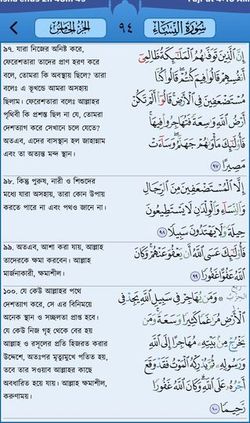 سُورَةُ النِّسَاء
٩٤
৯৭. যারা নিজের অনিষ্ট করে,
ফেরেশতারা তাদের প্রাণ হরণ করে
বলে, তোমরা কি অবস্থায় ছিলে? তারা
বলেঃ এ ভূখন্ডে আমরা অসহায়
ছিলাম। ফেরেশতারা বলেঃ আল্লাহর
পৃথিবী কি প্রশস্ত ছিল না যে, তোমরা
দেশত্যাগ করে সেখানে চলে যেতে?
অতএব, এদের বাসস্থান হল জাহান্নাম
এবং তা অত্যন্ত মন্দ স্থান।
إِنَّ ٱلَّذِينَ تَوَفَّىٰهُمُ ٱلْمَلَٰٓئِكَةُ ظَالِمِىٓ
أَنفُسِهِمْ قَالُوا۟ فِيمَ كُنتُمْ ۖ قَالُوا۟ كُنَّا
مُسْتَضْعَفِينَ فِى ٱلْأَرْضِ ۚ قَالُوٓا۟ أَلَمْ تَكُنْ
أَرْضُ ٱللَّهِ وَٰسِعَةً فَتُهَاجِرُوا۟ فِيهَا ۚ
فَأُو۟لَٰٓئِكَ مَأْوَىٰهُمْ جَهَنَّمُ ۖ وَسَآءَتْ
مَصِيرًا ٩٧
৯৮. কিন্তু পুরুষ, নারী ও শিশুদের
মধ্যে যারা অসহায়, তারা কোন উপায়
করতে পারে না এবং পথও জানে না।
إِلَّا ٱلْمُسْتَضْعَفِينَ مِنَ ٱلرِّجَالِ
وَٱلنِّسَآءِ وَٱلْوِلْدَٰنِ لَا يَسْتَطِيعُونَ
حِيلَةً وَلَا يَهْتَدُونَ سَبِيلًا
٩٨
৯৯. অতএব, আশা করা যায়, আল্লাহ
তাদেরকে ক্ষমা করবেন। আল্লাহ
মার্জনাকারী, ক্ষমাশীল।
فَأُو۟لَٰٓئِكَ عَسَى ٱللَّهُ أَن يَعْفُوَ عَنْهُمْ ۚ وَكَانَ
ٱللَّهُ عَفُوًّا غَفُورًا ٩٩
১০০. যে কেউ আল্লাহর পথে
দেশত্যাগ করে, সে এর বিনিময়ে
অনেক স্থান ও সচ্ছলতা প্রাপ্ত হবে।
যে কেউ নিজ গৃহ থেকে বের হয়
আল্লাহ ও রসূলের প্রতি হিজরত করার
উদ্দেশে, অতঃপর মৃত্যুমুখে পতিত হয়,
তবে তার সওয়াব আল্লাহর কাছে
অবধারিত হয়ে যায়। আল্লাহ ক্ষমাশীল,
করুণাময়।
وَمَن يُهَاجِرْ فِى سَبِيلِ ٱللَّهِ يَجِدْ فِى
ٱلْأَرْضِ مُرَٰغَمًا كَثِيرًا وَسَعَةً ۚ وَمَن
يَخْرُجْ مِنۢ بَيْتِهِۦ مُهَاجِرًا إِلَى ٱللَّهِ
وَرَسُولِهِۦ ثُمَّ يُدْرِكْهُ ٱلْمَوْتُ فَقَدْ وَقَعَ
أَجْرُهُۥ عَلَى ٱللَّهِ ۗ وَكَانَ ٱللَّهُ غَفُورًا
رَّحِيمًا